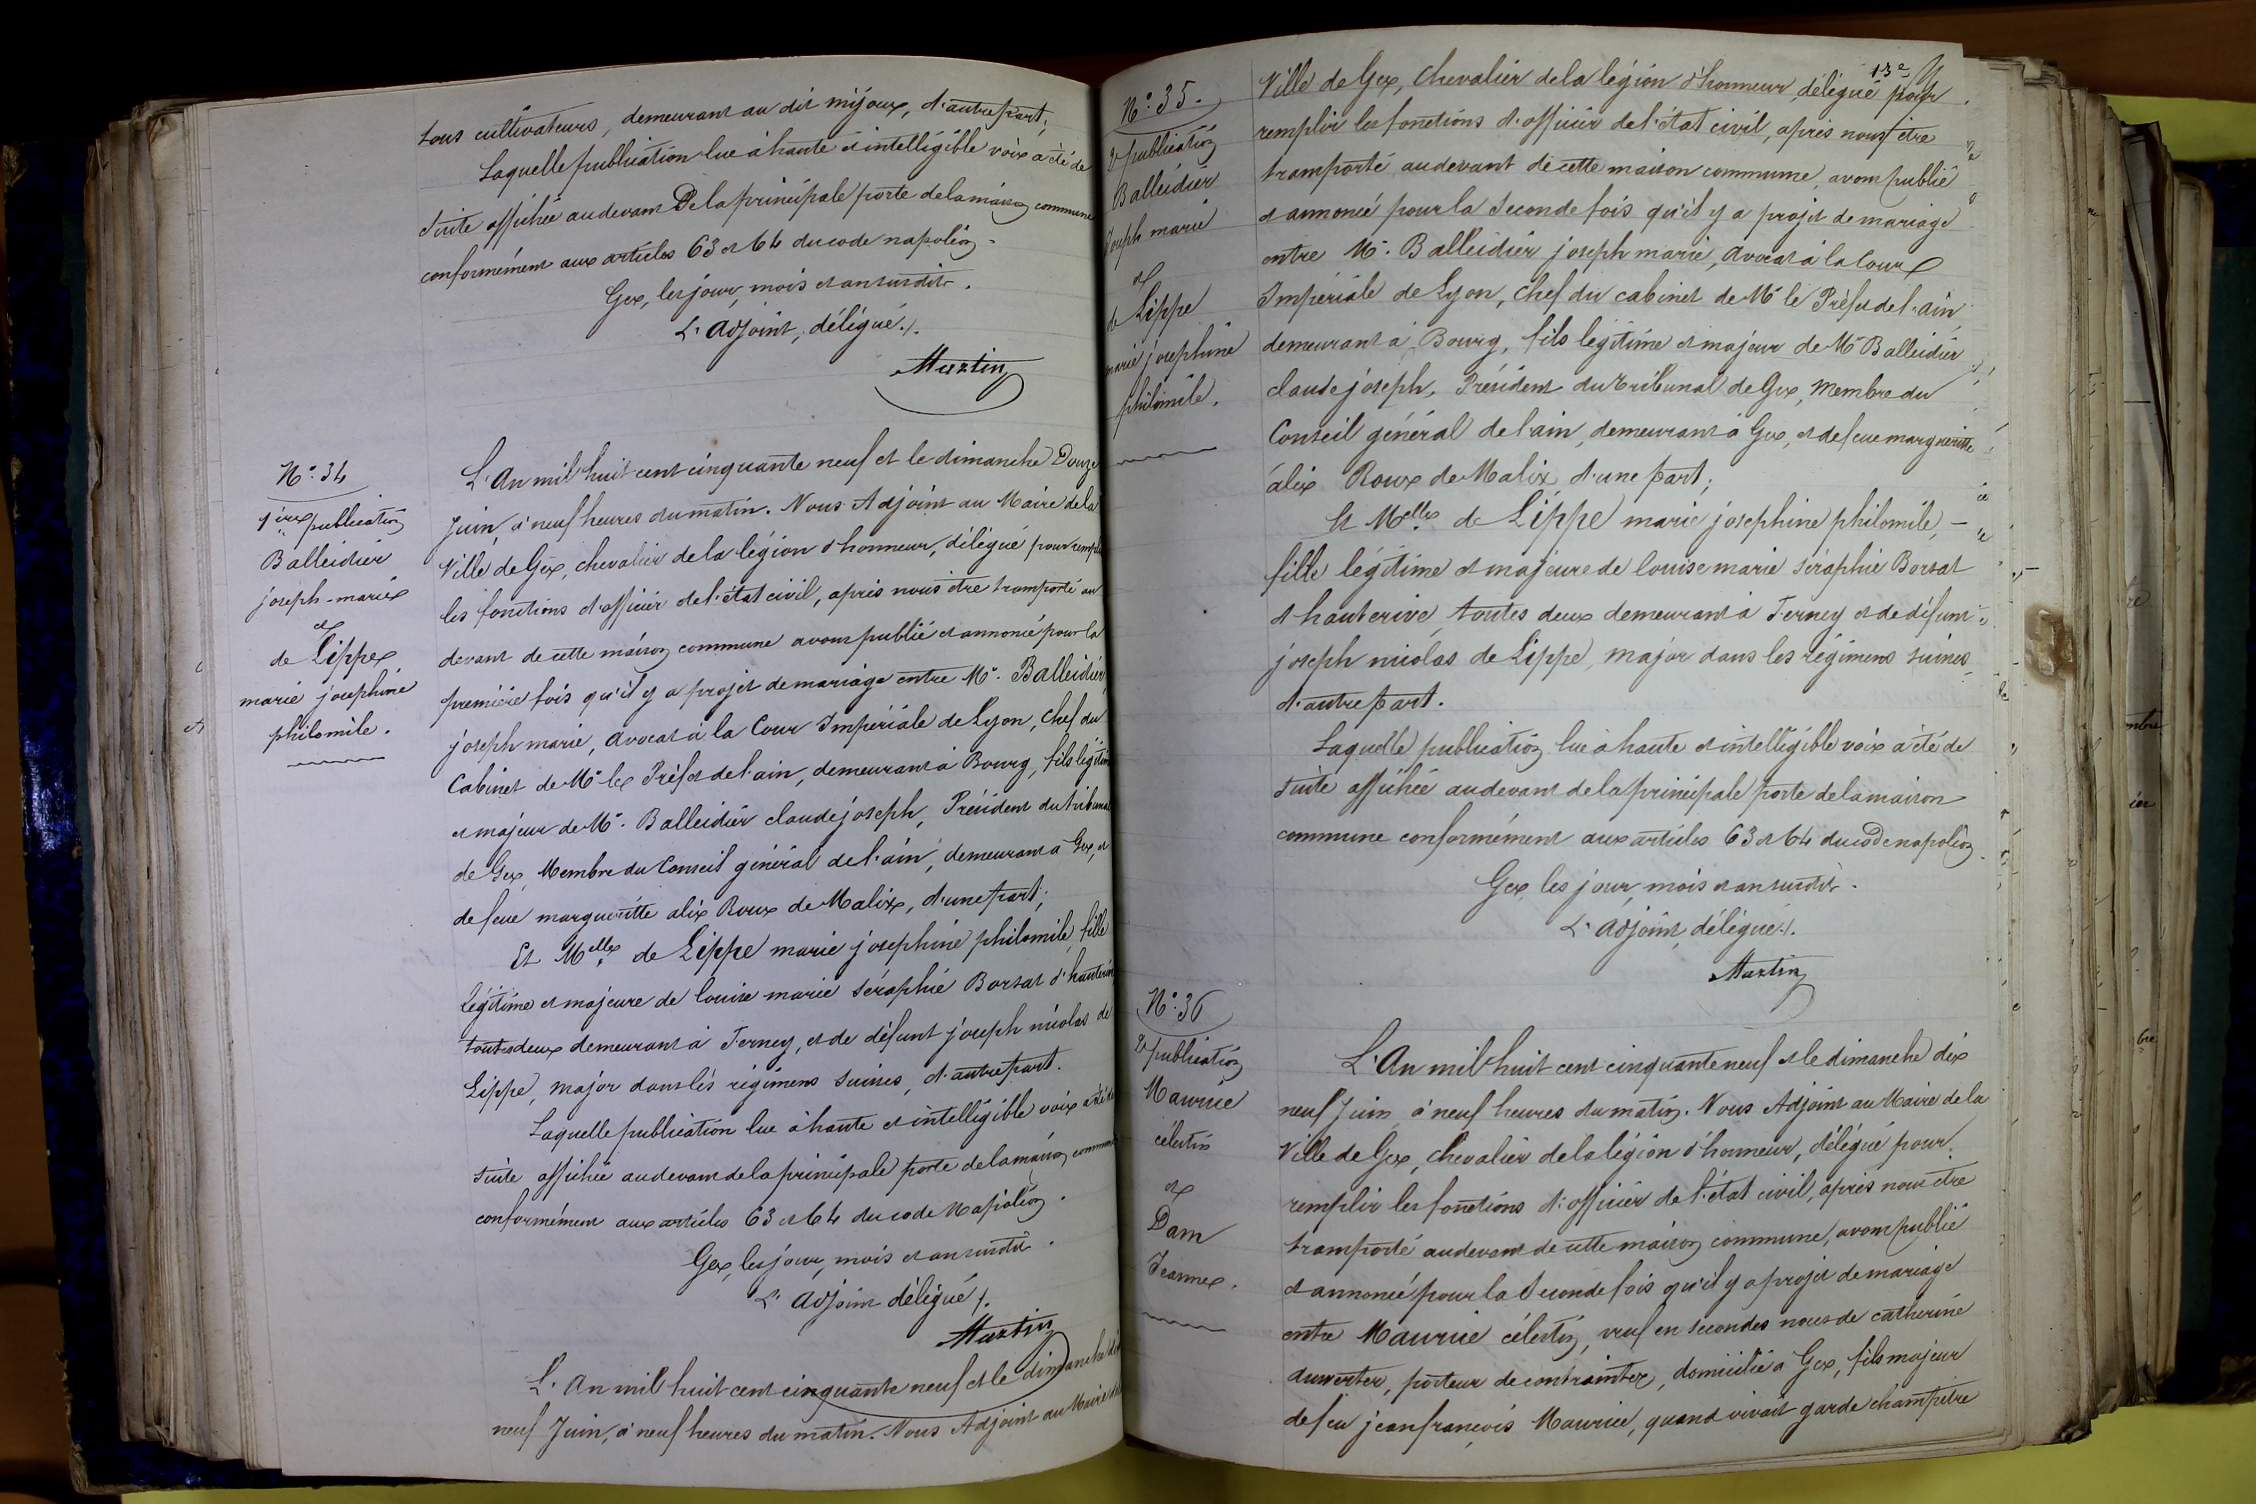 tous cultivateurs, demeurant au dit mijoux, d'autre part;
Laquelle publication lue à haute et intelligible voix a été de
suite affichée au devant De la principale porte de la maison commune
conformément aux articles 63 et 64 du code napoléon.
Gex, les jour, mois et an susdits.
L'adjoint, délégué.
Martin
N°. 34
1ère publication
Balleidier
joseph-marie
et
de Lippe
marie josephine
philomile.
L'An mil huit cent cinquante neuf et le dimanche Douze
Juin, à neuf heures du matin. Nous Adjoint au Maire de la
Ville de Gex, chevalier de la légion d'honneur, délégué pour remplir
les fonctions d'officier de l'état civil, après nous être transporté au
devant de cette maison commune avons publié et annoncé pour la
première fois qu'il y a projet de mariage entre Mr. Balleidier,
joseph marie, avocat à la Cour Impériale de Lyon, chef du
Cabinet de Mr le Préfet de l'ain, demeurant à Bourg, fils légitime
et majeur de Mr. Balleidier claude joseph, Président du tribunal
de Gex, Membre du Conseil général de l'ain, demeurant à Gex, et
de feue margueritte alix Roux de Malix, d'une part;
Et Melle de Lippe marie josephine philomile, fille
légitime et majeure de louise marie séraphie Borsat d'hauterive
toutes deux demeurant à Ferney, et de défunt joseph nicolas de
Lippe, major dans les régimens suisses, d'autre part.
Laquelle publication lue à haute et intelligible voix a été de
suite affichée au devant de la principale porte de la maison commune
conformément aux articles 63 et 64 du code Napoléon.
Gex, les jour, mois et an susdits.
L'adjoint délégué.
Martin
L'An mil huit cent cinquante neuf et le dimanche dix
neuf Juin, à neuf heures du matin. Nous Adjoint au Maire de la
13e
N°. 35.
2e publication
Balleidier
Joseph marie
et
de Lippe
marie josephine
philomile.
Ville de Gex, chevalier de la légion d'honneur, délégué pour
remplir les fonctions d'officier de l'état civil, après nous être
transporté au devant de cette maison commune, avons publié
et annoncé pour la seconde fois qu'il y a projet de mariage
entre Mr. Balleidier joseph marie, avocat à la Cour
Impériale de Lyon, chef du cabinet de Mr le Préfet de l'ain
demeurant à Bourg, fils légitime et majeur de Mr Balleidier
claude joseph, Président du tribunal de Gex, Membre du
Conseil général de l'ain, demeurant à Gex, et de feue margueritte
alix Roux de Malix d'une part;
Et Melle de Lippe marie josephine philomile, -
fille légitime et majeure de louise marie séraphie Borsat
d'hauterive, toutes deux demeurant à Ferney et de défunt
joseph nicolas de Lippe, major dans les régimens suisses
d'autre part.
Laquelle publication lue à haute et intelligible voix a été de
suite affichée au devant de la principale porte de la maison
commune conformément aux articles 63 et 64 du code napoléon.
Gex, les jour, mois et an susdits.
L'adjoint, délégué.
Martin
N°. 36
2e publication
Maurice
célestin
et
Dam
Jeanne.
L'An mil huit cent cinquante neuf et le dimanche dix
neuf Juin, à neuf heures du matin. Nous Adjoint au Maire de la
Ville de Gex, chevalier de la légion d'honneur, délégué pour
remplir les fonctions d'officier de l'état civil, après nous être
transporté au devant de cette maison commune, avons publié
et annoncé pour la Seconde fois qu'il y a projet de mariage
entre Maurice célestin, veuf en secondes noces de catherine
duverter, porteur de contraintes, domicilié à Gex, fils majeur
de feu jean françois Maurice, quand vivait garde champêtre